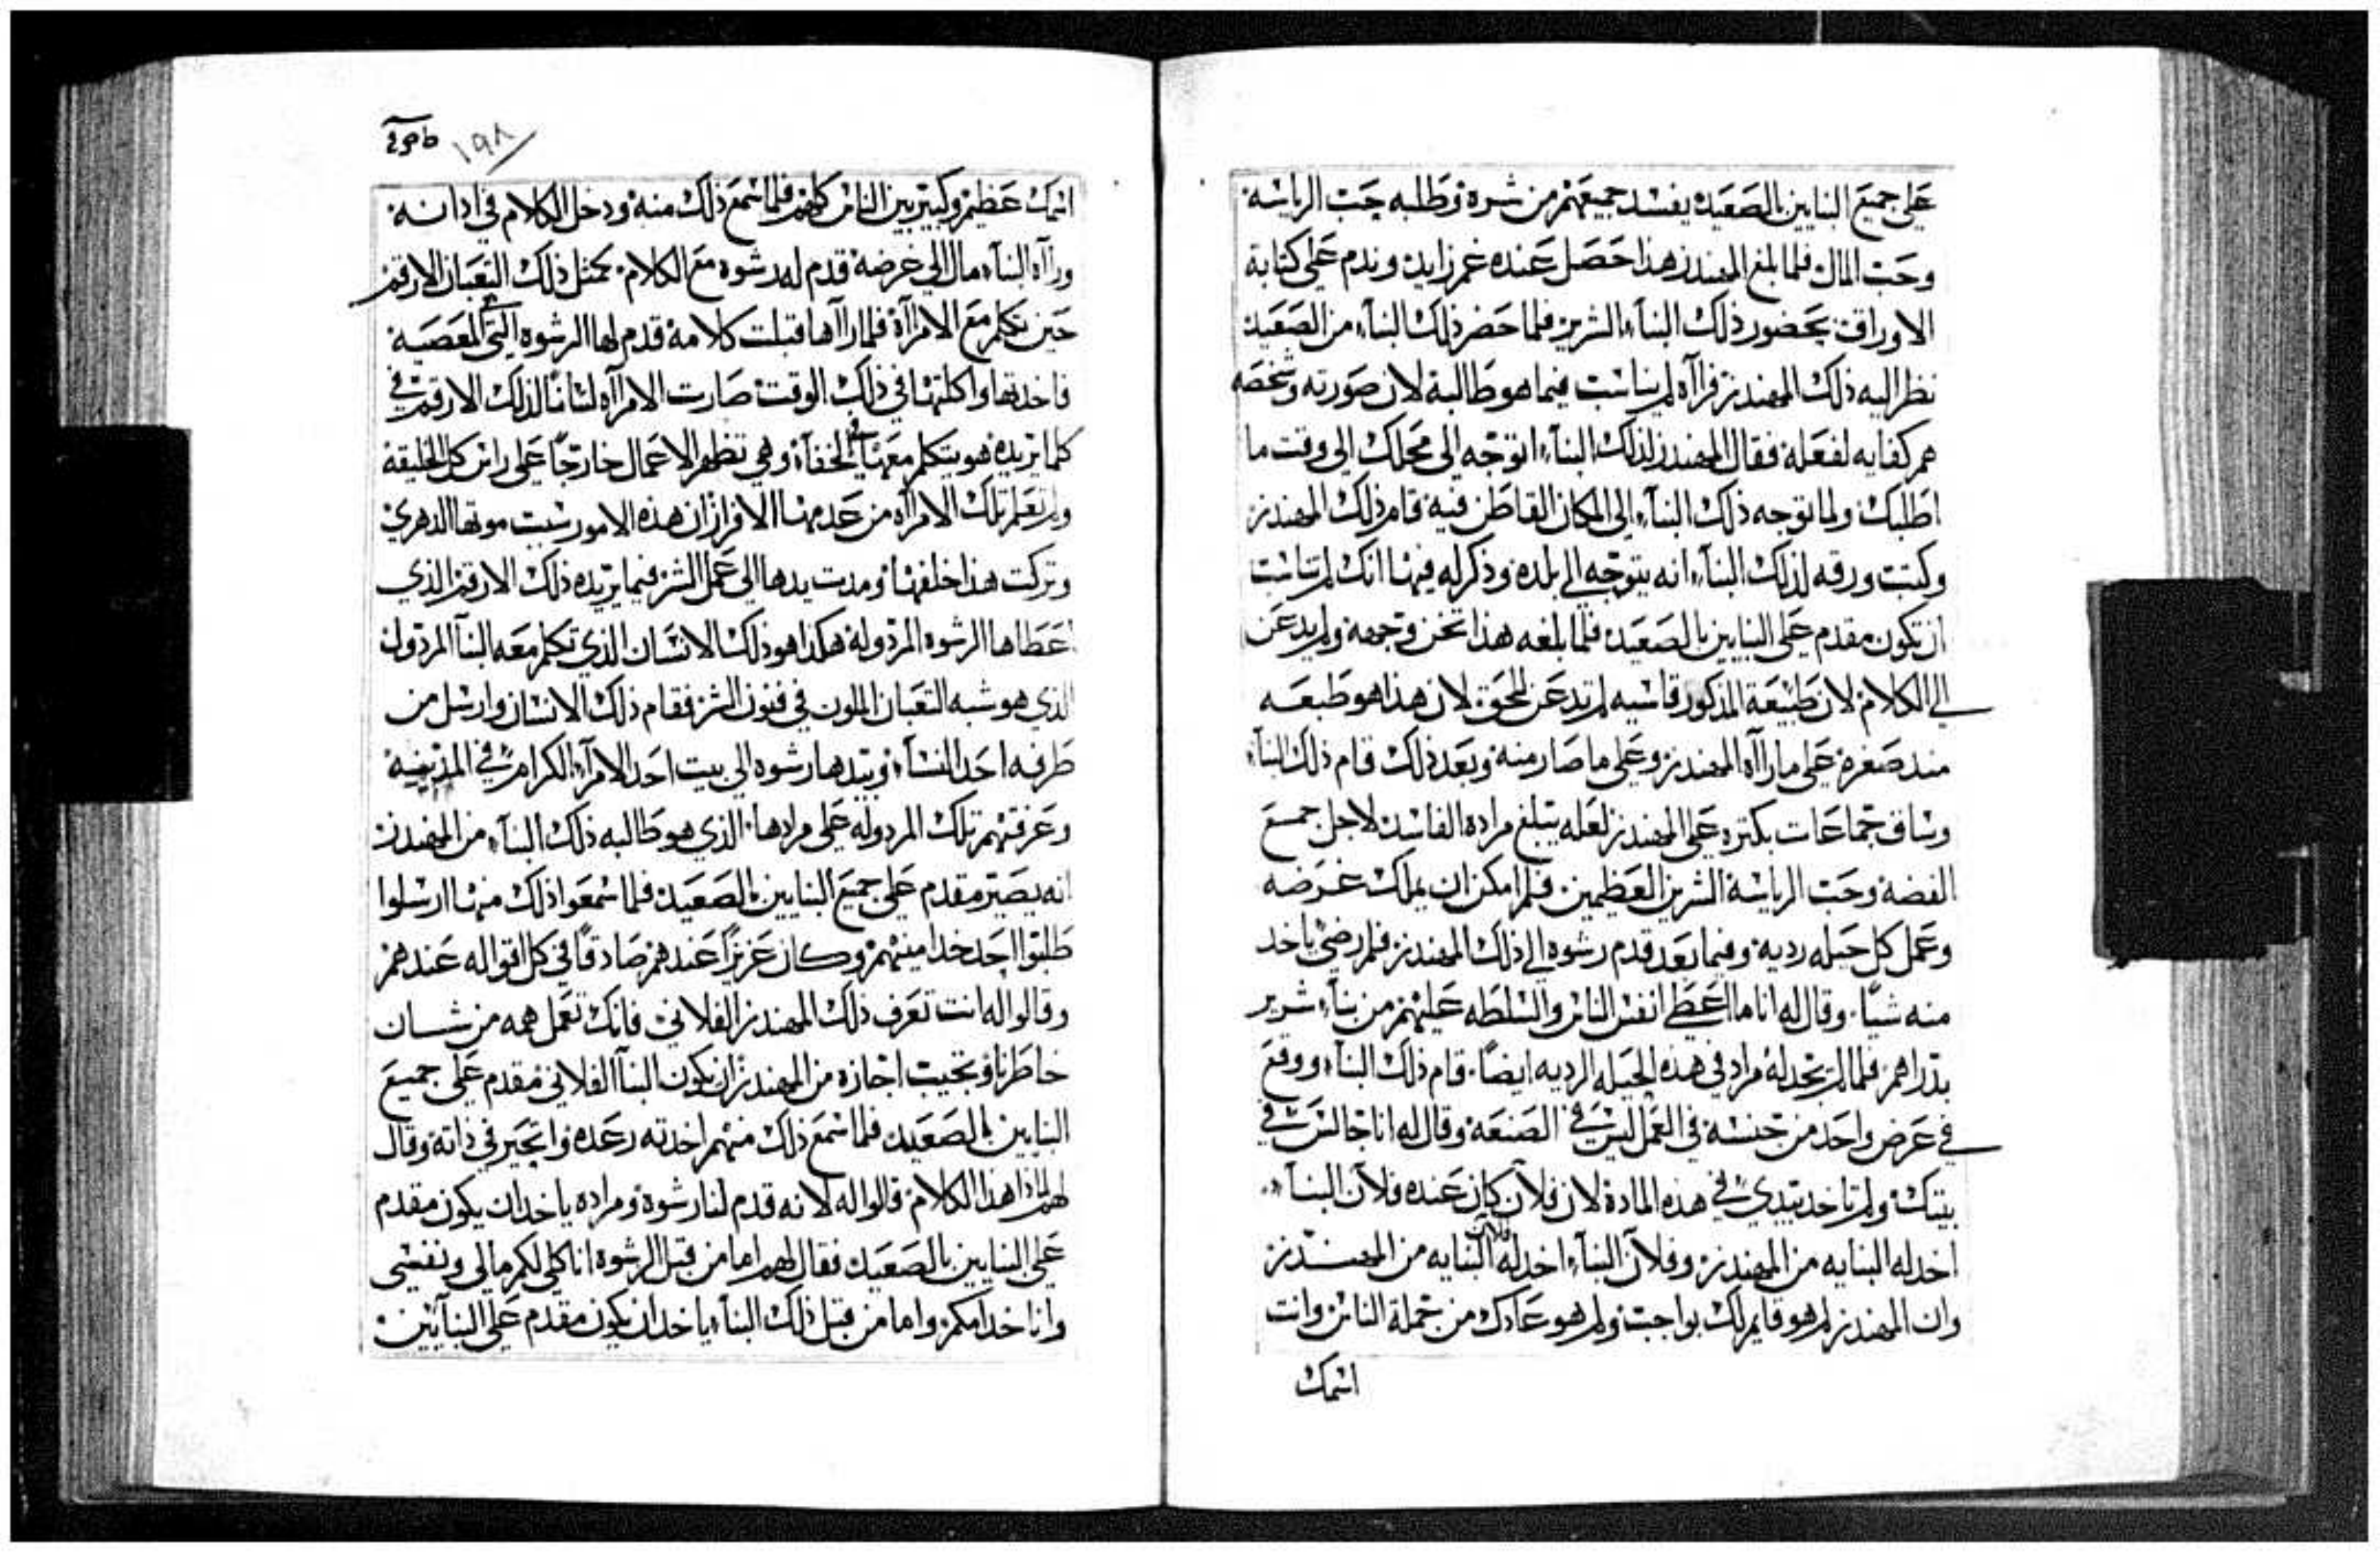 علي جميع النبايين بالصعيد يفسد جميعهم من شره وطلبه حب الرياسه
وحب المال فلما بلغ المهندز هذا حصل عنده غم زايد وندم علي كتابة
الاوراق بحضور ذلك البنآء الشرير فلما حضر ذلك البنآء من الصعيد
نظر اليه ذلك المهندز فرآه لم يناسب فيما هو طالبه لان صورته وشخصه
هم كفايه لفعله فقال المهندز لذلك البنآء اتوجه الي محلك الي وقت ما
اطلبك ولما توجه ذلك البنآء الي المكان القاطن فيه قام ذلك المهندز
وكتب ورقه لذلك البنآء انه يتوجه الي بلده وذكر له فيها انك لم تناسب
ان تكون مقدم علي البنايين بالصعيد فلما بلغه هذا تخن وجهه ولم يدعن
الي الكلام لان طبيعة المذكور قاسيه لم تدعن للحق لان هذا هو طبعه
مند صغره علي ما رآه المهندز وعلي ما صار منه وبعد ذلك قام ذلك البنآء
وساق جماعات بكتره علي المهندز لعله يبلغ مراده الفاسد لاجل جمع
الفضه وحب الرياسة الشرين العظمين فلم امكن ان يملك غرضه
وعمل كل حيله رديه وفيما بعد قدم رشوه الي ذلك المهندز فلم رضي ياخد
منه شيًا وقال له انا ما اعطي انفس الناس والسلطه عليهم من بنآء شرير
بدراهم فلما لم يجد له مراد في هذه الحيله الرديه ايضًا قام ذلك البنآء ووقع
في عرض واحد من جنسه في العمل ليس في الصنعه وقال له انا جالس في
بيتك ولم تاخد بيدي في هذه الماده لان فلان كان عنده فلان البنآء
اخد له البنايه من المهندز وفلان البنآء اخد له فلان البنايه من المهندز
وان المهندز لم هو قايم لك بواجب ولم هو عادك من جملة الناس وانت
اسمك
١٩٨
اسمك عظيم وكبير بين الناس كلهم فلما سمع ذلك منه ودخل الكلام في ادانه
ورآه البنآء مال الي غرضه قدم له رشوه مع الكلام كمثل ذلك التعبان الارقم
حين تكلم مع الامرآة فلما رآها قبلت كلامه قدم لها الرشوه التي للمعصيه
فاخدتها واكلتها في ذلك الوقت صارت الامرآه لسانًا لذلك الارقم في
كلما يريده هو يتكلم معها في الخفآء وهي تظهر الاعمال خارجًا علي راس كل الخليقه
ولم تعلم تلك الامرآه من عدمها الافراز ان هذه الامور سبب موتها الدهري
وتركت هذا خلفها ومدت يدها الي عمل الشر فيما يريده ذلك الارقم الذي
اعطاها الرشوه المردوله هكذا هو ذلك الانسان الذي تكلم معه البنآ المردول
الذي هو شبه التعبان الملون في فنون الشر فقام ذلك الانسان وارسل من
طرفه احد النسآء وبيدها رشوه الي بيت احد الامرآء الكرام في المدينه
وعرفتهم تلك المردوله علي مرادها الذي هو طالبه ذلك البنآء من المهندز
انه يصير مقدم علي جميع البنايين بالصعيد فلما سمعوا ذلك منها ارسلوا
طلبوا احد خدامينهم وكان عزيزًا عندهم صادقًا في كل اقواله عندهم
وقالوا له انت تعرف ذلك المهندز الفلاني فانك تعمل همه من شان
خاطرنا وتجيب اجازه من المهندز ان يكون البنآ الفلاني مقدم علي جميع
البنايين بالصعيد فلما سمع ذلك منهم اخدته رعده واتحير في داته وقال
لهم لماذا هذا الكلام قالوا له لانه قدم لنا رشوه ومراده ياخد ان يكون مقدم
علي البنايين بالصعيد فقال لهم اما من قبل الرشوه انا كلي لكم مالي ونفسي
وانا خدامكم واما من قبل ذلك البنآء ياخد ان يكون مقدم علي البنآيين